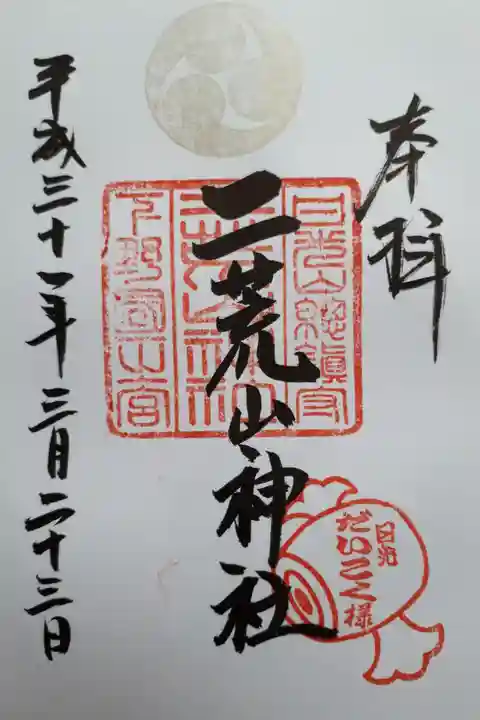 奉拝
二荒山神社
平成三十一年三月二十三日
日光山総鎮守
二荒山神社
下野国一宮
日光
だいこく様